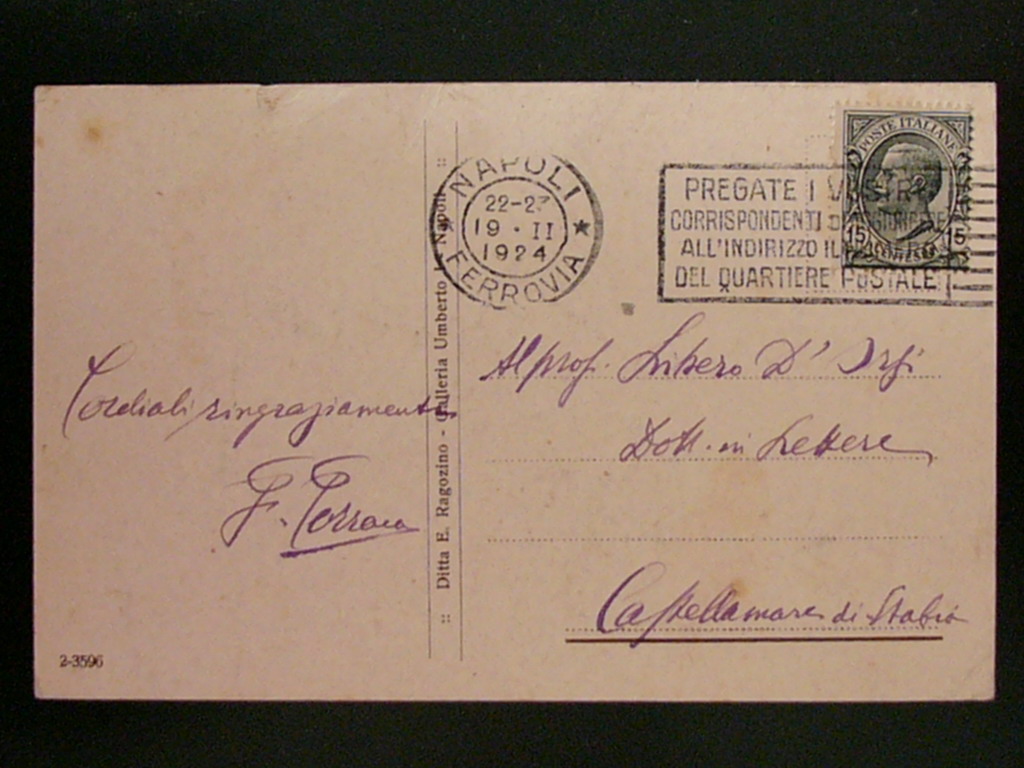 NAPOLI
22-23
19·II
1924
FERROVIA
PREGATE I VOSTRI
CORRISPONDENTI
ALL'INDIRIZZO IL
DEL QUARTIERE POSTALE
POSTE ITALIANE
15 15
CENTESIMI
Cordiali ringraziamenti
F. Torraca
:: Ditta E. Ragozino - Galleria Umberto I. Napoli ::
Al prof. Libero D'Orsi
Dott. in Lettere
Castellamare di Stabia
2-3596